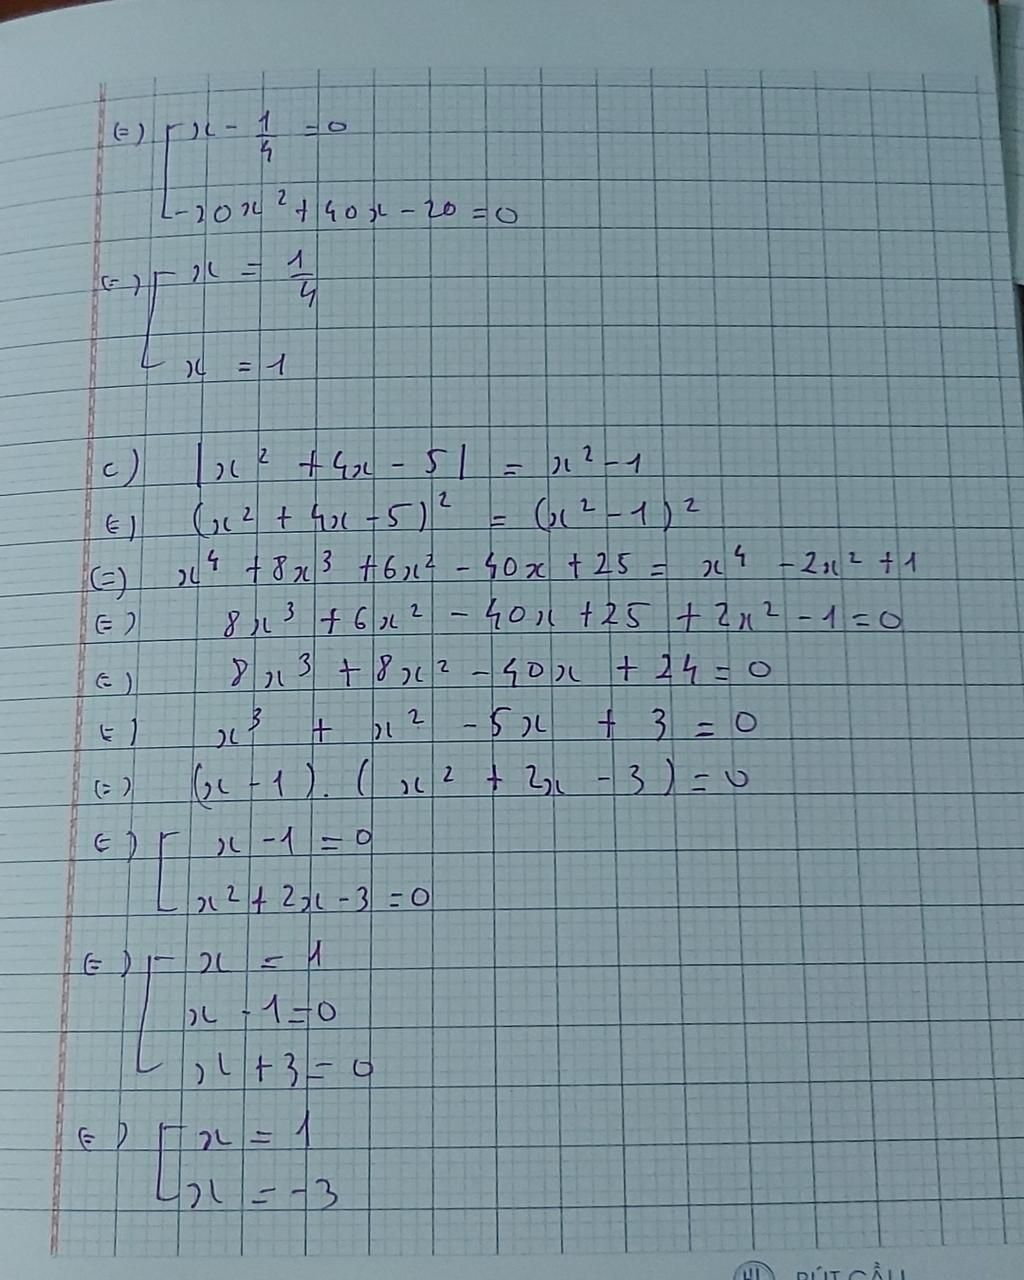 (=) [ x - 1/4 = 0
-20x² + 40x - 20 = 0
(=) [ x = 1/4
x = 1
c) |x² + 4x - 5| = x² - 1
(=) (x² + 4x - 5)² = (x² - 1)²
(=) x⁴ + 8x³ + 6x² - 40x + 25 = x⁴ - 2x² + 1
(=) 8x³ + 6x² - 40x + 25 + 2x² - 1 = 0
(=) 8x³ + 8x² - 40x + 24 = 0
(=) x³ + x² - 5x + 3 = 0
(=) (x - 1).(x² + 2x - 3) = 0
(=) [ x - 1 = 0
x² + 2x - 3 = 0
(=) [ x = 1
x - 1 = 0
x + 3 = 0
(=) [ x = 1
x = -3
BÚT CẦU